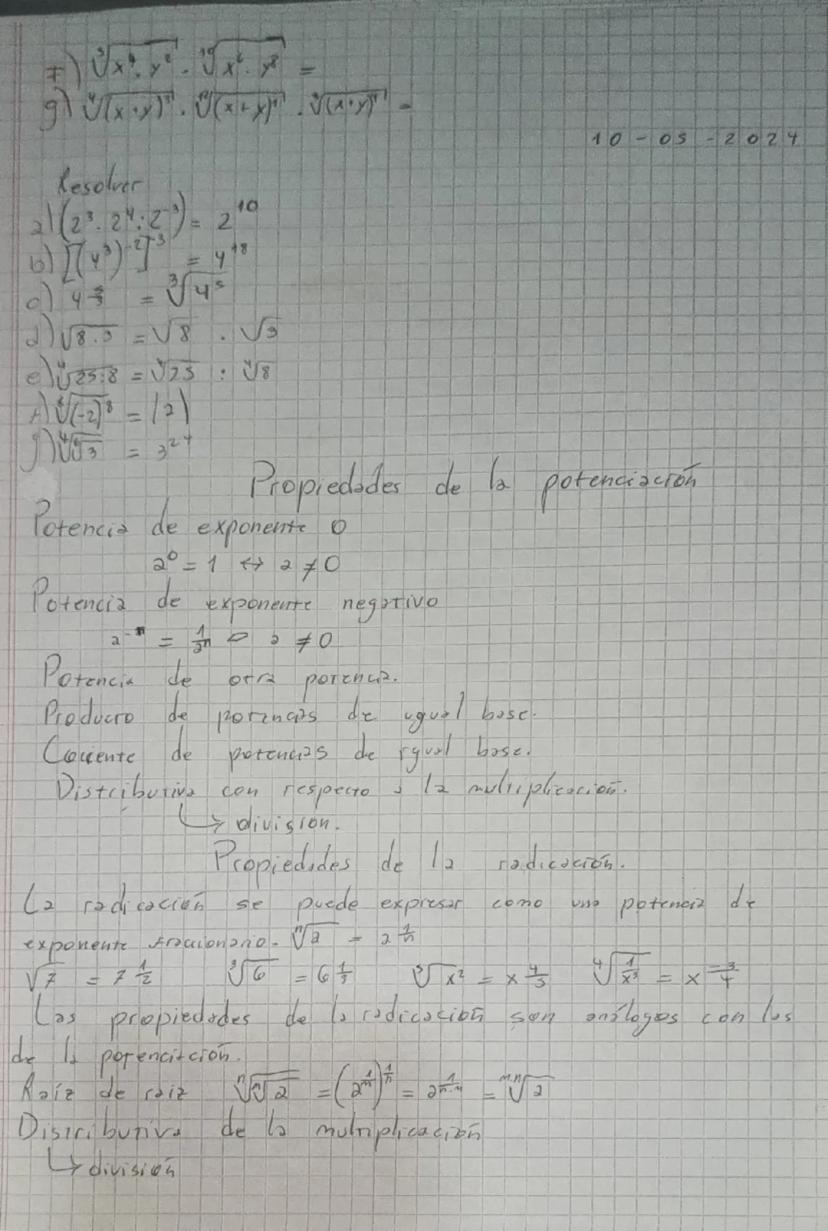 f) ∛(x⁴·y²) · ¹⁰√(x⁶·y⁸) =
g) ⁴√(x+y)¹¹ · ¹²√(x+y)¹¹ · ⁵√(x+y)¹¹ =
10-05-2024
Resolver
a) (2³·2⁴:2⁻³) = 2¹⁰
b) [(4³)⁻²]⁻³ = 4¹⁸
c) 4^(5/3) = ∛4⁵
d) √8·3 = √8 · √3
e) ⁴√25:8 = ⁴√25 : ⁴√8
f) ⁸√(-2)⁸ = |2|
g) ⁴√⁶√3 = 3²⁴
Propiedades de la potenciación
Potencia de exponente 0
a⁰ = 1 ↔ a ≠ 0
Potencia de exponente negativo
a⁻ⁿ = 1/aⁿ ⇔ a ≠ 0
Potencia de otra potencia.
Producto de potencias de igual base.
Cociente de potencias de igual base.
Distributiva con respecto a la multiplicación.
↳ división.
Propiedades de la radicación.
La radicación se puede expresar como una potencia de
exponente fraccionario. ⁿ√a = a^(1/n)
√7 = 7^(1/2) ∛6 = 6^(1/3) ∛x² = x^(4/3) ⁴√(1/x³) = x^(-3/4)
Las propiedades de la radicación son análogas con las
de la potenciación.
Raíz de raiz ⁿ√ᵐ√a = (a^(1/m))^(1/n) = a^(1/n·m) = ᵐ·ⁿ√a
Distributiva de la multiplicación
↳ división